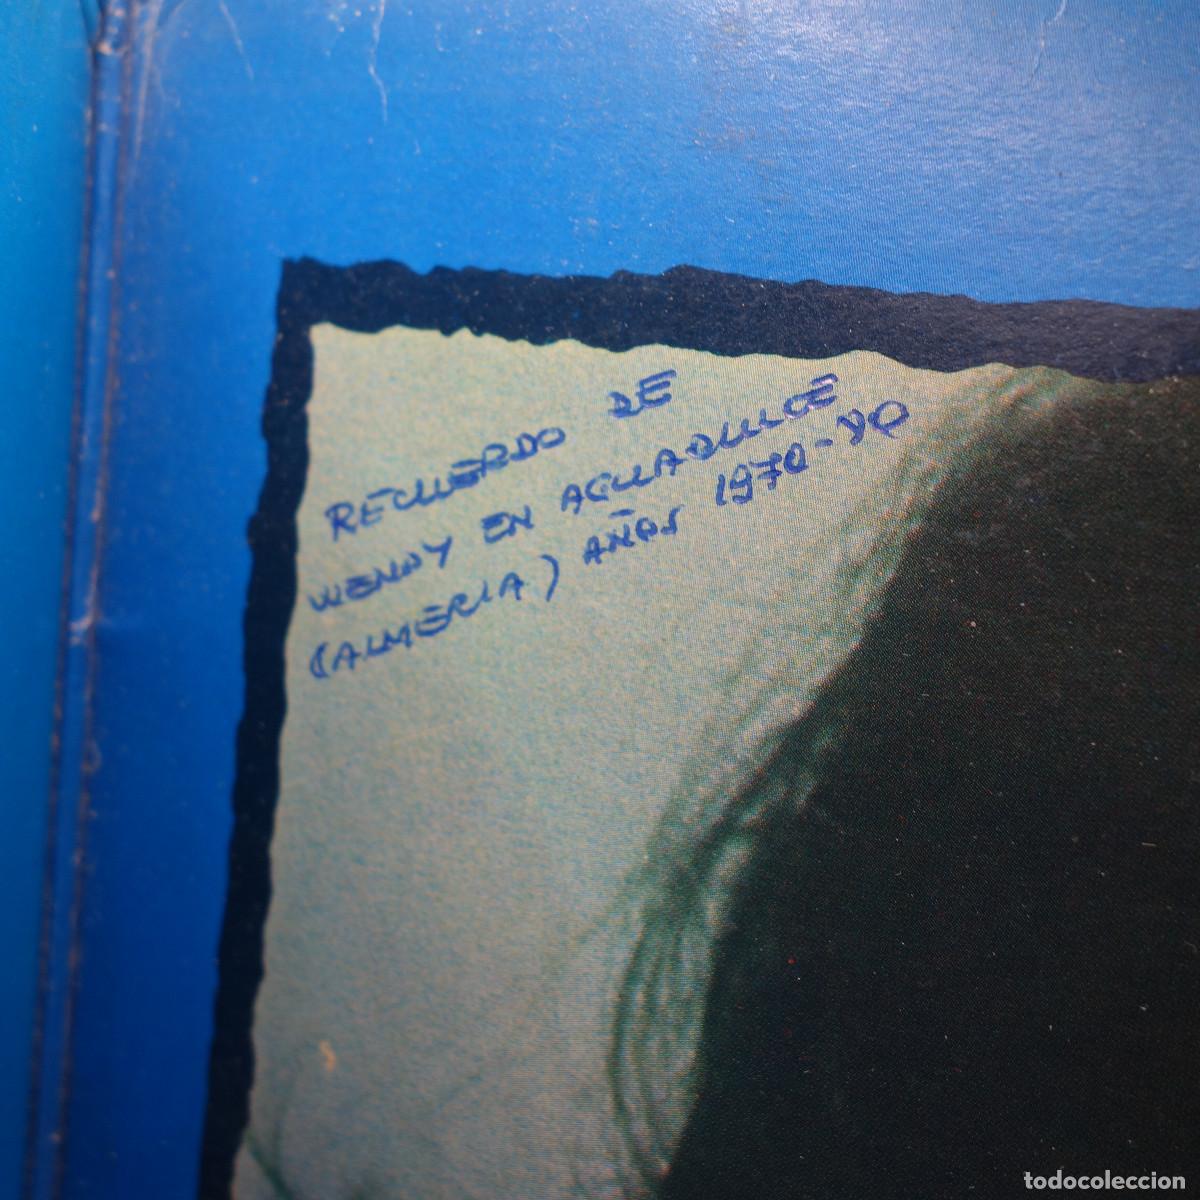 RECUERDO DE
WENDY EN AGUADULCE
(ALMERIA) AÑOS 1970-80
todocoleccion